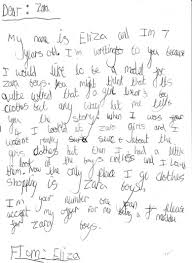 Dear: Zara
My name is Eliza and I'm 7
years old I'm writing to you because
I would like to be a model for
zara boys. You might think that it's
quite weird that a girl wear's boy
clothes but any way let me tell
you the story when I was
4 I looked at zara girls and I
wasn't really about the
girls clothes but then I had a little
look at the boy's clothes and I loved
them. now the only place I go clothes
shopping is zara boys.
I'm your number one fan please
accept my for me to be a model
for zara boys.
From: Eliza